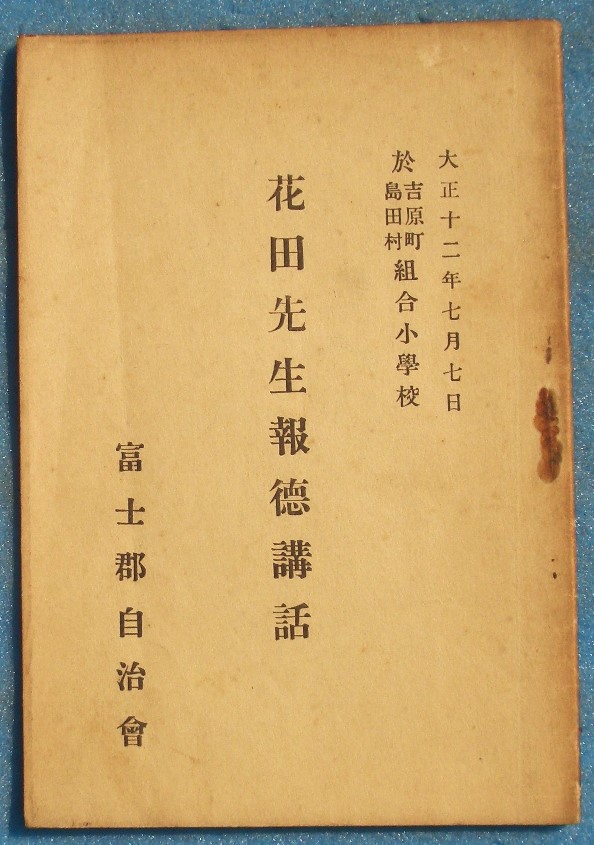 大正十二年七月七日
於吉原町島田村組合小學校
花田先生報德講話
富士郡自治會